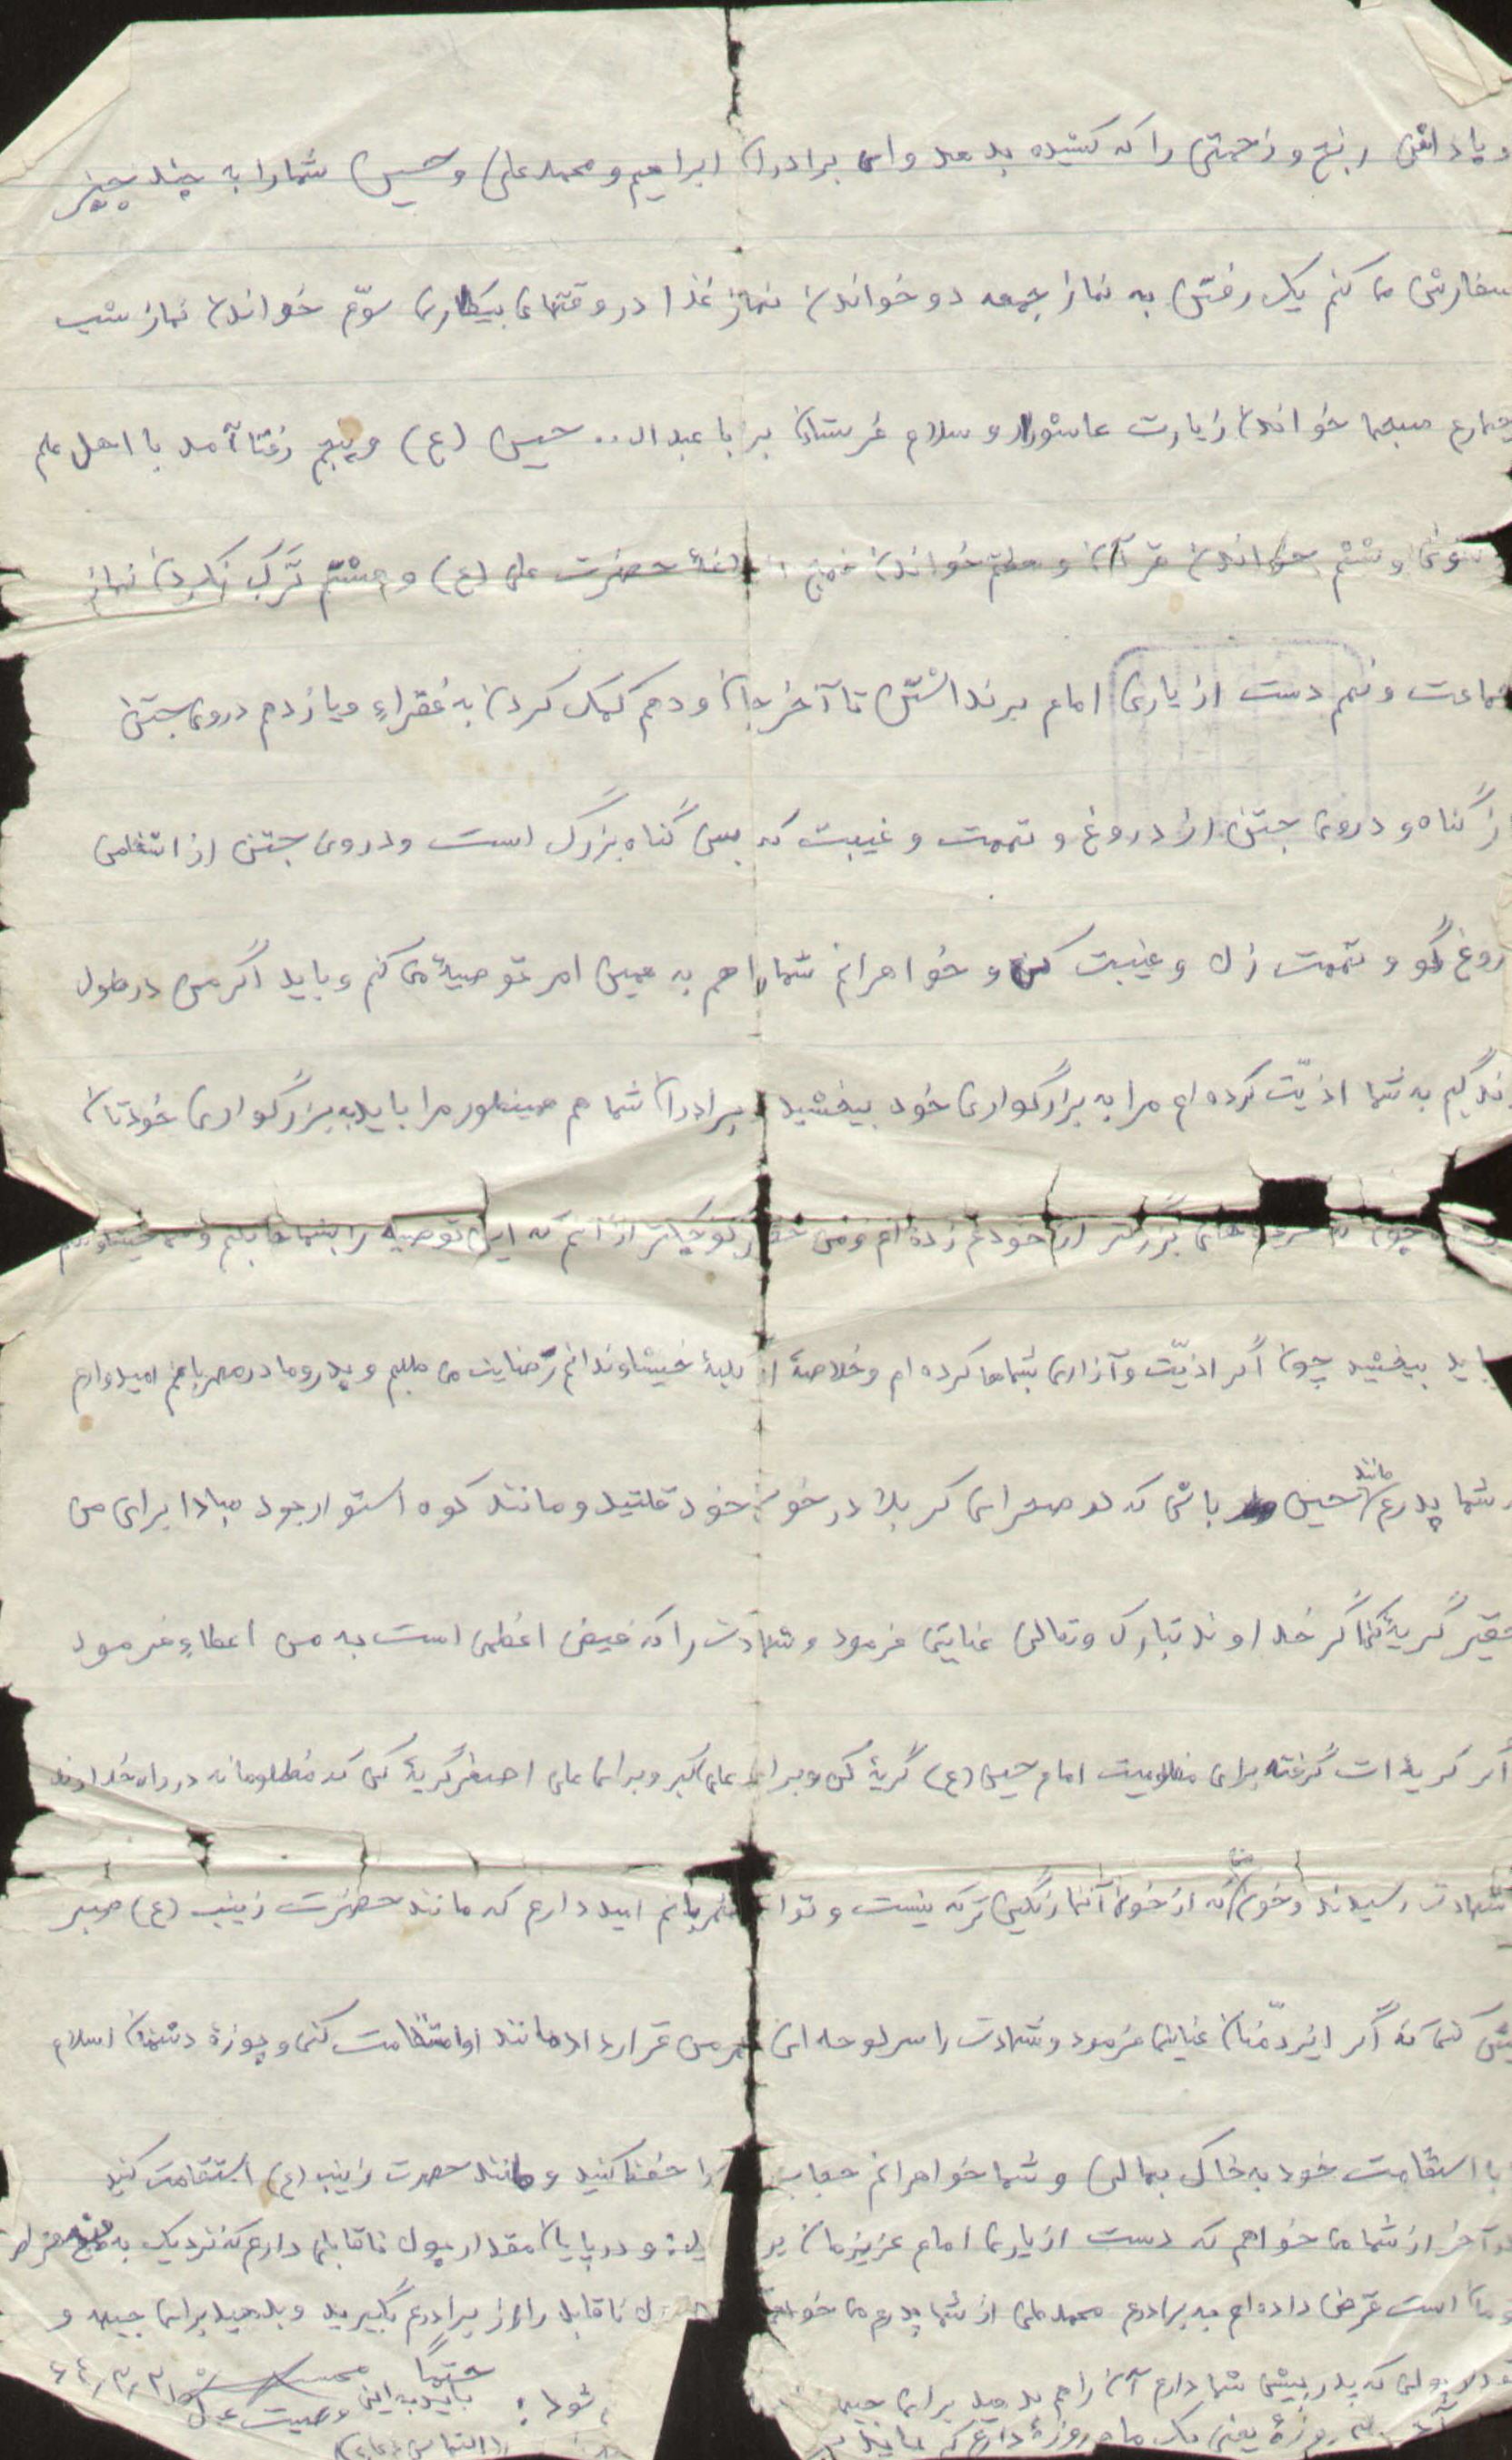 و پاداش رنج و زحمتی را که کشیده بدهد وای برادران ابراهیم و محمد علی و حسین شما را به چند چیز
سفارش می کنم یک رفتن به نماز جمعه دو خواندن نماز غذا در وقتهای بیکاری سوّم خواندن نماز شب
چهارم صبحها خواندن زیارت عاشورا و سلام فرستادن بر با عبدال.. حسین (ع) و پنجم رفتا آمد با اهل علم
و ششم خواندن قرآن و هفتم خواندن نهج البلاغهٔ حضرت علی (ع) و هشتم ترک نکردن نماز
جماعت و نهم دست از یاری امام برنداشتن تا آخر جان و دهم کمک کردن به فقراء و یازدهم دروی جتن
از گناه و دروی جتن از دروغ و تهمت و غیبت که بس گناه بزرگ است و دروی جتن از اشخاصی
دروغ گو و تهمت زن و غیبت کن و خواهرانم شما را هم به همین امر توصیهٔ می کنم و باید اگر من در طول
زندگیم به شما اذیّت کرده ام مرا به بزارگواری خود بیخشید برادران شما هم همینطور مرا باید به بزرگواری خودتان
چون بزرگتر از خودم زده ام و من کوچکتر از آنم که این توصیه را بشماها بکنم
باید بیخشید چون اگر اذیّت و آزاری بشماها کرده ام و خلاصهٔ از کلیهٔ خیشاوندانم رضایت می طلبم و پدر و مادر مهربانم امیدوارم
شما پدرم مانند حسین باشی که در صحرای کربلا در خون خود غلتید و مانند کوه استوار بود مبادا برای من
حقیر گریهٔ کنی اگر خداوند تبارک و تعالی عنایتی فرمود و شهادت را که فیض اعظمی است به من اعطاء فرمود
اگر گریهٔ ات گرفته برای مظلومیت امام حسین (ع) گریهٔ کن و برای علی اکبر و برای علی اصغر گریهٔ کنی که مظلومانه در راه خداوند
شهادت رسیدند و خون من که از خون آنها رنگین ترکه نیست و تو ای مادر مهربانم امید دارم که مانند حضرت زینب (ع) صبر
پیش کنی که اگر ایزد منّان عنایتی فرمود و شهادت را سرلوحه ای عمر من قرار داد مانند او استقامت کنی و پوزهٔ دشمنان اسلام
با استقامت خود به خاک بمالی و شما خواهرانم حجاب را حفظ کنید و مانند حضرت زینب (ع) استقامت کنید
در آخر از شما می خواهم که دست از یاری امام عزیزمان بر و در پایان مقدار پول ناقابلی دارم که نزدیک به پنج هزار
تومان است قرض داده ام به برادرم محمد علی از شما پدرم می خواهم ناقابل را از برادرم بگیرید و بدهید برای جبهه و
پولی که پدر پیش شما دارم آن را هم بدهید برای جبهه
روزهٔ یعنی یک ماه روزهٔ دارم که باید
شود:
حتماً باید به این وصیت عمل
۶۴٫۳٫۳۱
(التماس دعا)